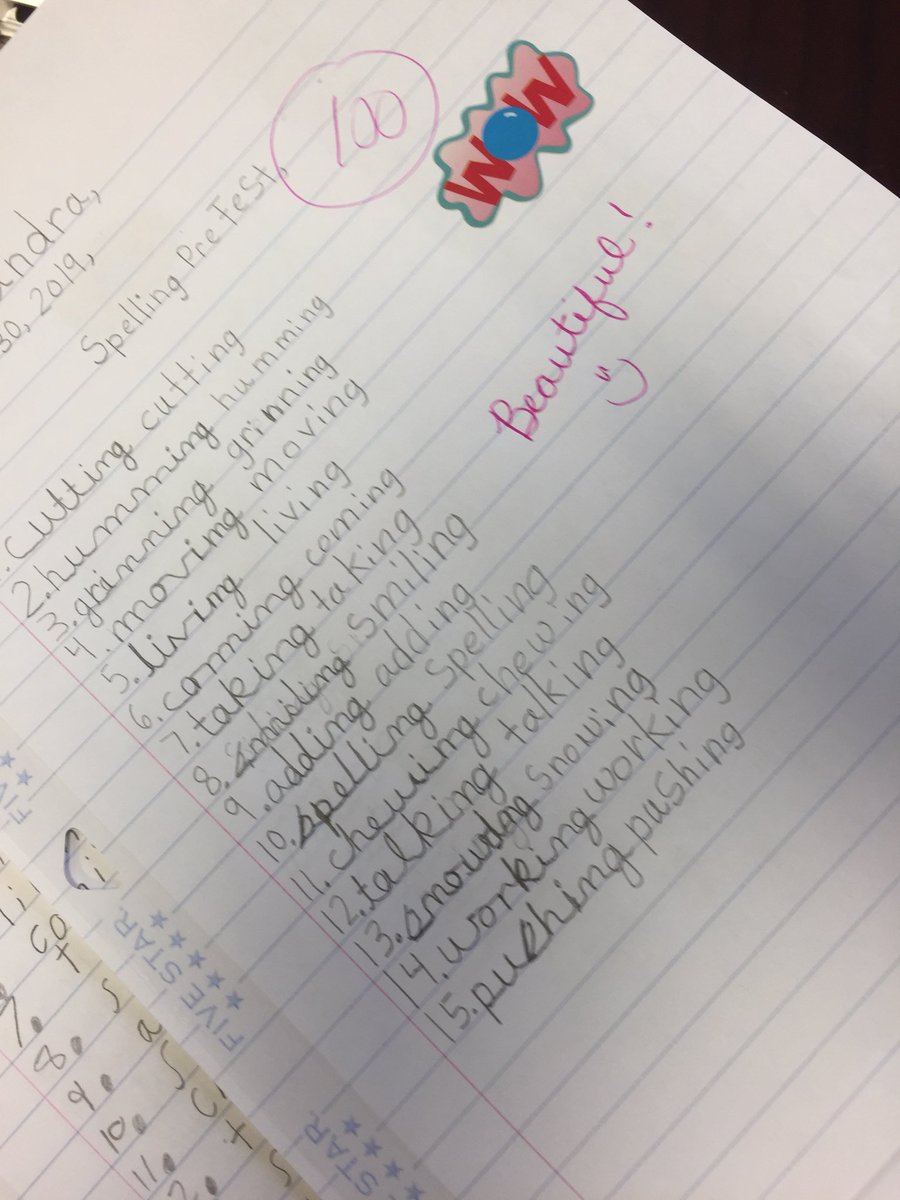 100
WOW
andra,
30, 2019,
Spelling PreTest,
Beautiful!
1. cutting cutting
2. humming humming
3. grinning grinning
4. moving moving
5. living living
6. coming coming
7. taking taking
8. smiling smiling
9. adding adding
10. spelling spelling
11. chewing chewing
12. talking talking
13. snowing snowing
14. working working
15. pushing pushing
FIVE STAR
FIVE STAR
STAR
co
t
7. s
8. a
9. s
10. c
11. t
2. s